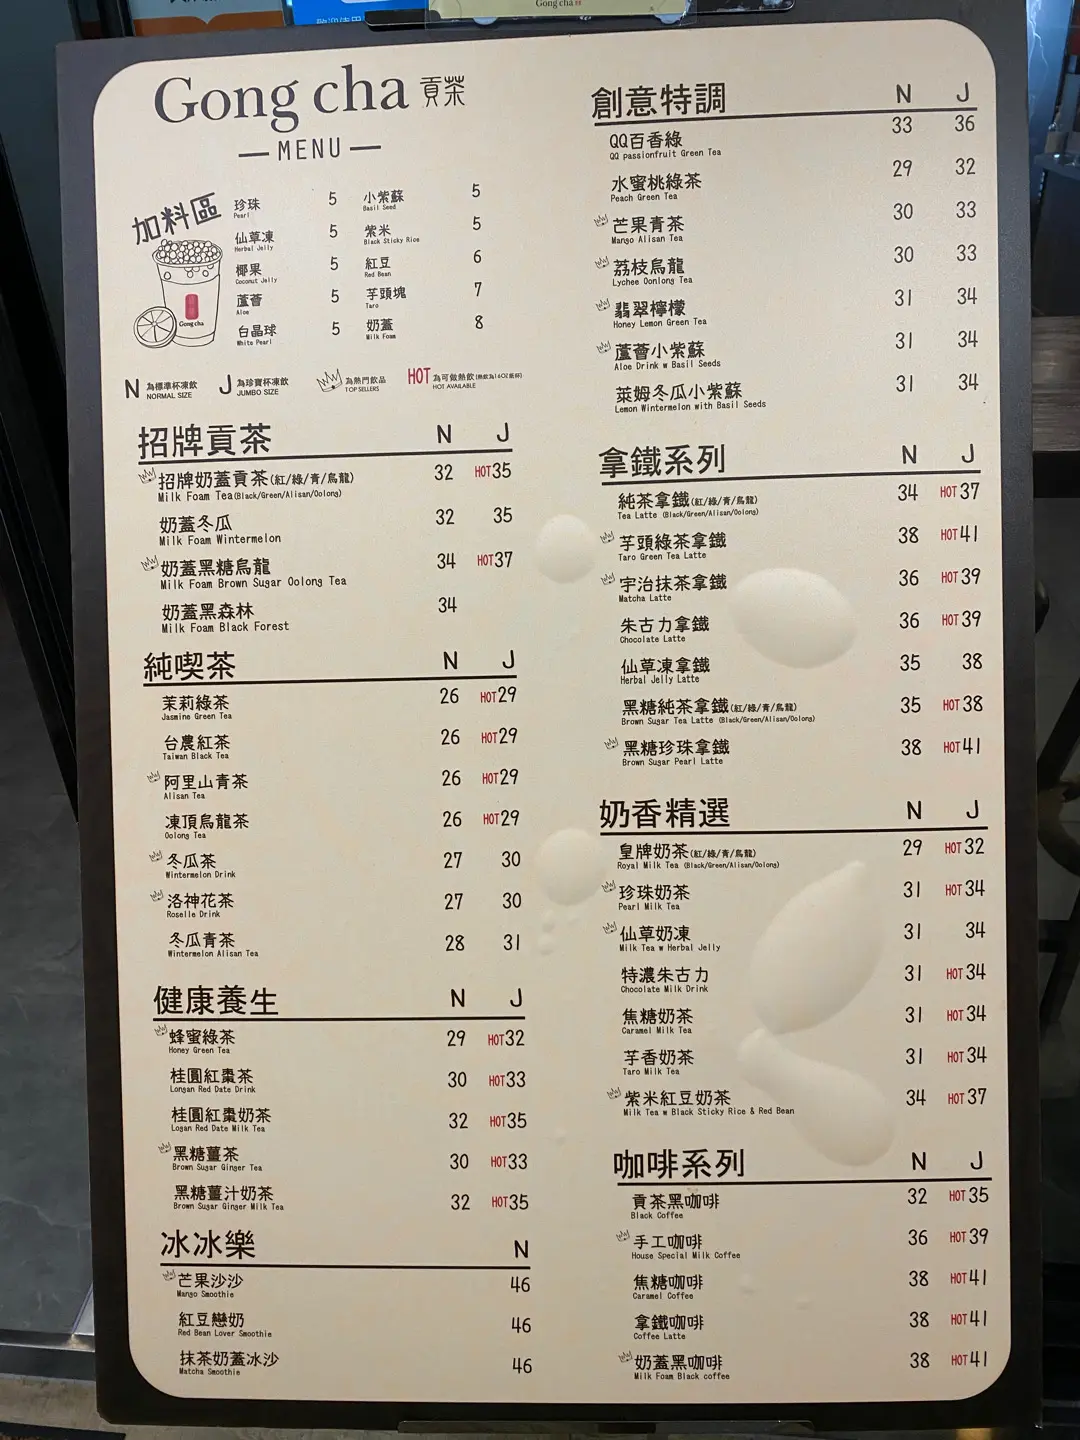 Gong cha
Gong cha 貢茶
MENU
加料區
珍珠 5
Pearl
仙草凍 5
Herbal Jelly
椰果 5
Coconut Jelly
蘆薈 5
Aloe
白晶球 5
White Pearl
小紫蘇 5
Basil Seed
紫米 5
Black Sticky Rice
紅豆 6
Red Bean
芋頭塊 7
Taro
奶蓋 8
Milk Foam
Gong cha
N 為標準杯凍飲
NORMAL SIZE
J 為珍寶杯凍飲
JUMBO SIZE
為熱門飲品
TOP SELLERS
HOT 為可做熱飲(熱飲為16OZ紙杯)
HOT AVAILABLE
招牌貢茶 N J
招牌奶蓋貢茶(紅/綠/青/烏龍) 32 HOT35
Milk Foam Tea(Black/Green/Alisan/Oolong)
奶蓋冬瓜 32 35
Milk Foam Wintermelon
奶蓋黑糖烏龍 34 HOT37
Milk Foam Brown Sugar Oolong Tea
奶蓋黑森林 34
Milk Foam Black Forest
純喫茶 N J
茉莉綠茶 26 HOT29
Jasmine Green Tea
台農紅茶 26 HOT29
Taiwan Black Tea
阿里山青茶 26 HOT29
Alisan Tea
凍頂烏龍茶 26 HOT29
Oolong Tea
冬瓜茶 27 30
Wintermelon Drink
洛神花茶 27 30
Roselle Drink
冬瓜青茶 28 31
Wintermelon Alisan Tea
健康養生 N J
蜂蜜綠茶 29 HOT32
Honey Green Tea
桂圓紅棗茶 30 HOT33
Longan Red Date Drink
桂圓紅棗奶茶 32 HOT35
Logan Red Date Milk Tea
黑糖薑茶 30 HOT33
Brown Sugar Ginger Tea
黑糖薑汁奶茶 32 HOT35
Brown Sugar Ginger Milk Tea
冰冰樂 N
芒果沙沙 46
Mango Smoothie
紅豆戀奶 46
Red Bean Lover Smoothie
抹茶奶蓋冰沙 46
Matcha Smoothie
創意特調 N J
QQ百香綠 33 36
QQ passionfruit Green Tea
水蜜桃綠茶 29 32
Peach Green Tea
芒果青茶 30 33
Mango Alisan Tea
荔枝烏龍 30 33
Lychee Oonlong Tea
翡翠檸檬 31 34
Honey Lemon Green Tea
蘆薈小紫蘇 31 34
Aloe Drink w Basil Seeds
萊姆冬瓜小紫蘇 31 34
Lemon Wintermelon with Basil Seeds
拿鐵系列 N J
純茶拿鐵(紅/綠/青/烏龍) 34 HOT37
Tea Latte (Black/Green/Alisan/Oolong)
芋頭綠茶拿鐵 38 HOT41
Taro Green Tea Latte
宇治抹茶拿鐵 36 HOT39
Matcha Latte
朱古力拿鐵 36 HOT39
Chocolate Latte
仙草凍拿鐵 35 38
Herbal Jelly Latte
黑糖純茶拿鐵(紅/綠/青/烏龍) 35 HOT38
Brown Sugar Tea Latte (Black/Green/Alisan/Oolong)
黑糖珍珠拿鐵 38 HOT41
Brown Sugar Pearl Latte
奶香精選 N J
皇牌奶茶(紅/綠/青/烏龍) 29 HOT32
Royal Milk Tea (Black/Green/Alisan/Oolong)
珍珠奶茶 31 HOT34
Pearl Milk Tea
仙草奶凍 31 34
Milk Tea w Herbal Jelly
特濃朱古力 31 HOT34
Chocolate Milk Drink
焦糖奶茶 31 HOT34
Caramel Milk Tea
芋香奶茶 31 HOT34
Taro Milk Tea
紫米紅豆奶茶 34 HOT37
Milk Tea w Black Sticky Rice & Red Bean
咖啡系列 N J
貢茶黑咖啡 32 HOT35
Black Coffee
手工咖啡 36 HOT39
House Special Milk Coffee
焦糖咖啡 38 HOT41
Caramel Coffee
拿鐵咖啡 38 HOT41
Coffee Latte
奶蓋黑咖啡 38 HOT41
Milk Foam Black coffee